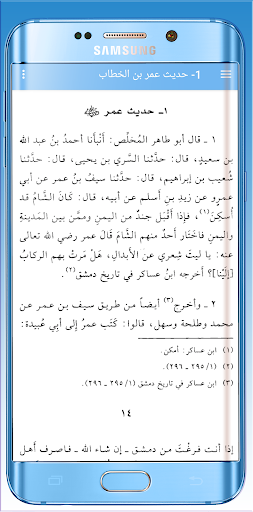 SAMSUNG
1- حديث عمر بن الخطاب
١ـ حديث عمر ﷺ
١ ـ قال أبو طاهر المُخلّص: أَنْبَأَنا أحمدُ بنُ عبد الله
بن سعيدٍ، حدثنا السَّري بن يحيى، قال: حدَّثنا
شُعيب بن إبراهيم، قال: حدثنا سيفُ بنُ عمر عن أبي
عمرو عن زيدِ بنِ أسلم عن أبيه، قال: كَانَ الشَّامُ قد
أُسكِنَ(١)، فإذا أَقْبَل جندٌ من اليمنِ وممَّن بين المدينةِ
واليمنِ فاختَار أحدٌ منهم الشَّامَ قالَ عمر رضي الله تعالى
عنه: يا ليتَ شِعري عن الأبدالِ، هَلْ مَرَّت بهم الركابُ
[إلَيْنا]؟ أخرجه ابنُ عساكر في تاريخ دمشق(٢).
٢ ـ وأخرج(٣) أيضاً من طريق سيف بن عمر عن
محمد وطلحة وسهل، قالوا: كَتَب عمرُ إلى أبي عُبيدة:
(١) ابن عساكر: أمكن.
(٢) (١/ ٢٩٥ - ٢٩٦).
(٣) ابن عساكر في تاريخ دمشق (١/ ٢٩٥ - ٢٩٦).
١٤
إذا أنت فرغْتَ من دمشق ـ إن شاء الله ـ فاصرف أهل